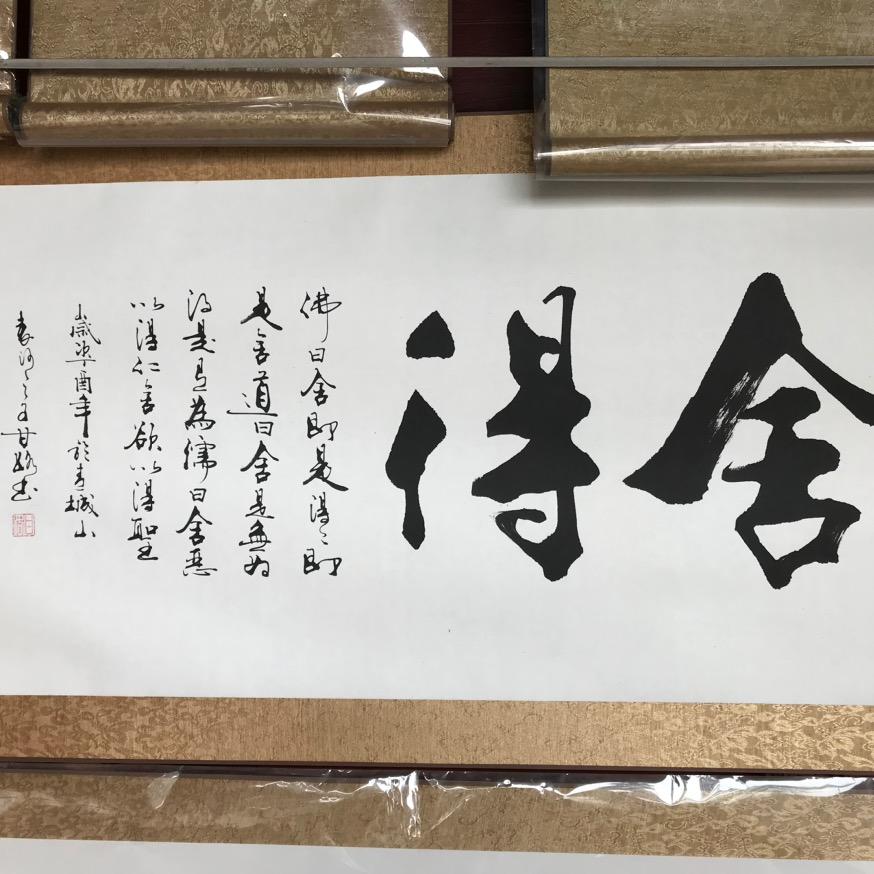 舍得
佛曰舍即是得得即
是舍道曰舍是無为
得是有為儒曰舍惡
以得仁舍欲以得聖
歲次辛酉年於青城山
甘 书